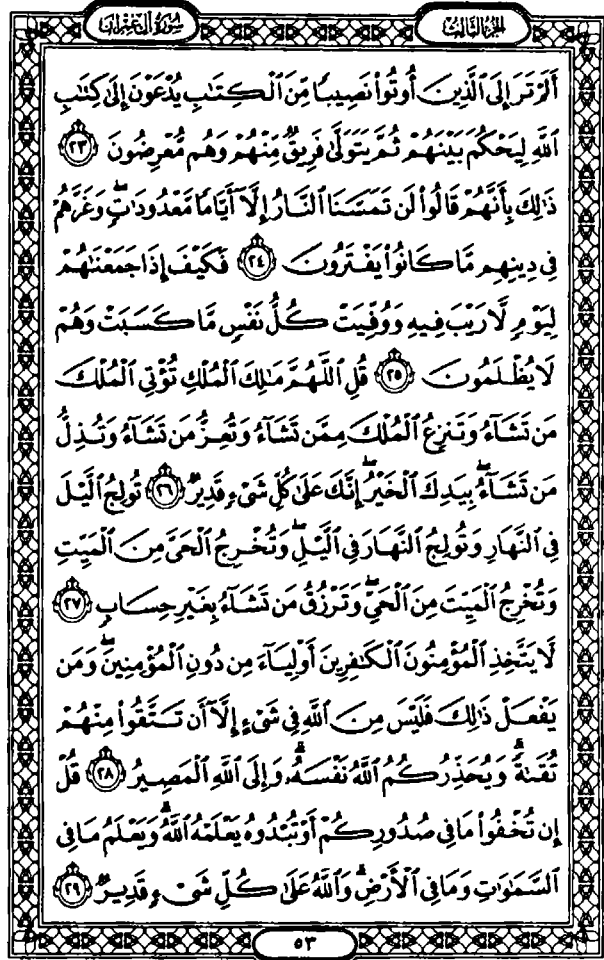 سورة آل عمران
الجزء الثالث
أَلَمْ تَرَ إِلَى ٱلَّذِينَ أُوتُوا۟ نَصِيبًا مِّنَ ٱلْكِتَٰبِ يُدْعَوْنَ إِلَىٰ كِتَٰبِ
ٱللَّهِ لِيَحْكُمَ بَيْنَهُمْ ثُمَّ يَتَوَلَّىٰ فَرِيقٌ مِّنْهُمْ وَهُم مُّعْرِضُونَ ٢٣
ذَٰلِكَ بِأَنَّهُمْ قَالُوا۟ لَن تَمَسَّنَا ٱلنَّارُ إِلَّآ أَيَّامًا مَّعْدُودَٰتٍ ۖ وَغَرَّهُمْ
فِى دِينِهِم مَّا كَانُوا۟ يَفْتَرُونَ ٢٤ فَكَيْفَ إِذَا جَمَعْنَٰهُمْ
لِيَوْمٍ لَّا رَيْبَ فِيهِ وَوُفِّيَتْ كُلُّ نَفْسٍ مَّا كَسَبَتْ وَهُمْ
لَا يُظْلَمُونَ ٢٥ قُلِ ٱللَّهُمَّ مَٰلِكَ ٱلْمُلْكِ تُؤْتِى ٱلْمُلْكَ
مَن تَشَآءُ وَتَنزِعُ ٱلْمُلْكَ مِمَّن تَشَآءُ وَتُعِزُّ مَن تَشَآءُ وَتُذِلُّ
مَن تَشَآءُ ۖ بِيَدِكَ ٱلْخَيْرُ ۖ إِنَّكَ عَلَىٰ كُلِّ شَىْءٍ قَدِيرٌ ٢٦ تُولِجُ ٱلَّيْلَ
فِى ٱلنَّهَارِ وَتُولِجُ ٱلنَّهَارَ فِى ٱلَّيْلِ ۖ وَتُخْرِجُ ٱلْحَىَّ مِنَ ٱلْمَيِّتِ
وَتُخْرِجُ ٱلْمَيِّتَ مِنَ ٱلْحَىِّ ۖ وَتَرْزُقُ مَن تَشَآءُ بِغَيْرِ حِسَابٍ ٢٧
لَّا يَتَّخِذِ ٱلْمُؤْمِنُونَ ٱلْكَٰفِرِينَ أَوْلِيَآءَ مِن دُونِ ٱلْمُؤْمِنِينَ ۖ وَمَن
يَفْعَلْ ذَٰلِكَ فَلَيْسَ مِنَ ٱللَّهِ فِى شَىْءٍ إِلَّآ أَن تَتَّقُوا۟ مِنْهُمْ
تُقَىٰةً ۗ وَيُحَذِّرُكُمُ ٱللَّهُ نَفْسَهُۥ ۗ وَإِلَى ٱللَّهِ ٱلْمَصِيرُ ٢٨ قُلْ
إِن تُخْفُوا۟ مَا فِى صُدُورِكُمْ أَوْ تُبْدُوهُ يَعْلَمْهُ ٱللَّهُ ۗ وَيَعْلَمُ مَا فِى
ٱلسَّمَٰوَٰتِ وَمَا فِى ٱلْأَرْضِ ۗ وَٱللَّهُ عَلَىٰ كُلِّ شَىْءٍ قَدِيرٌ ٢٩
٥٣